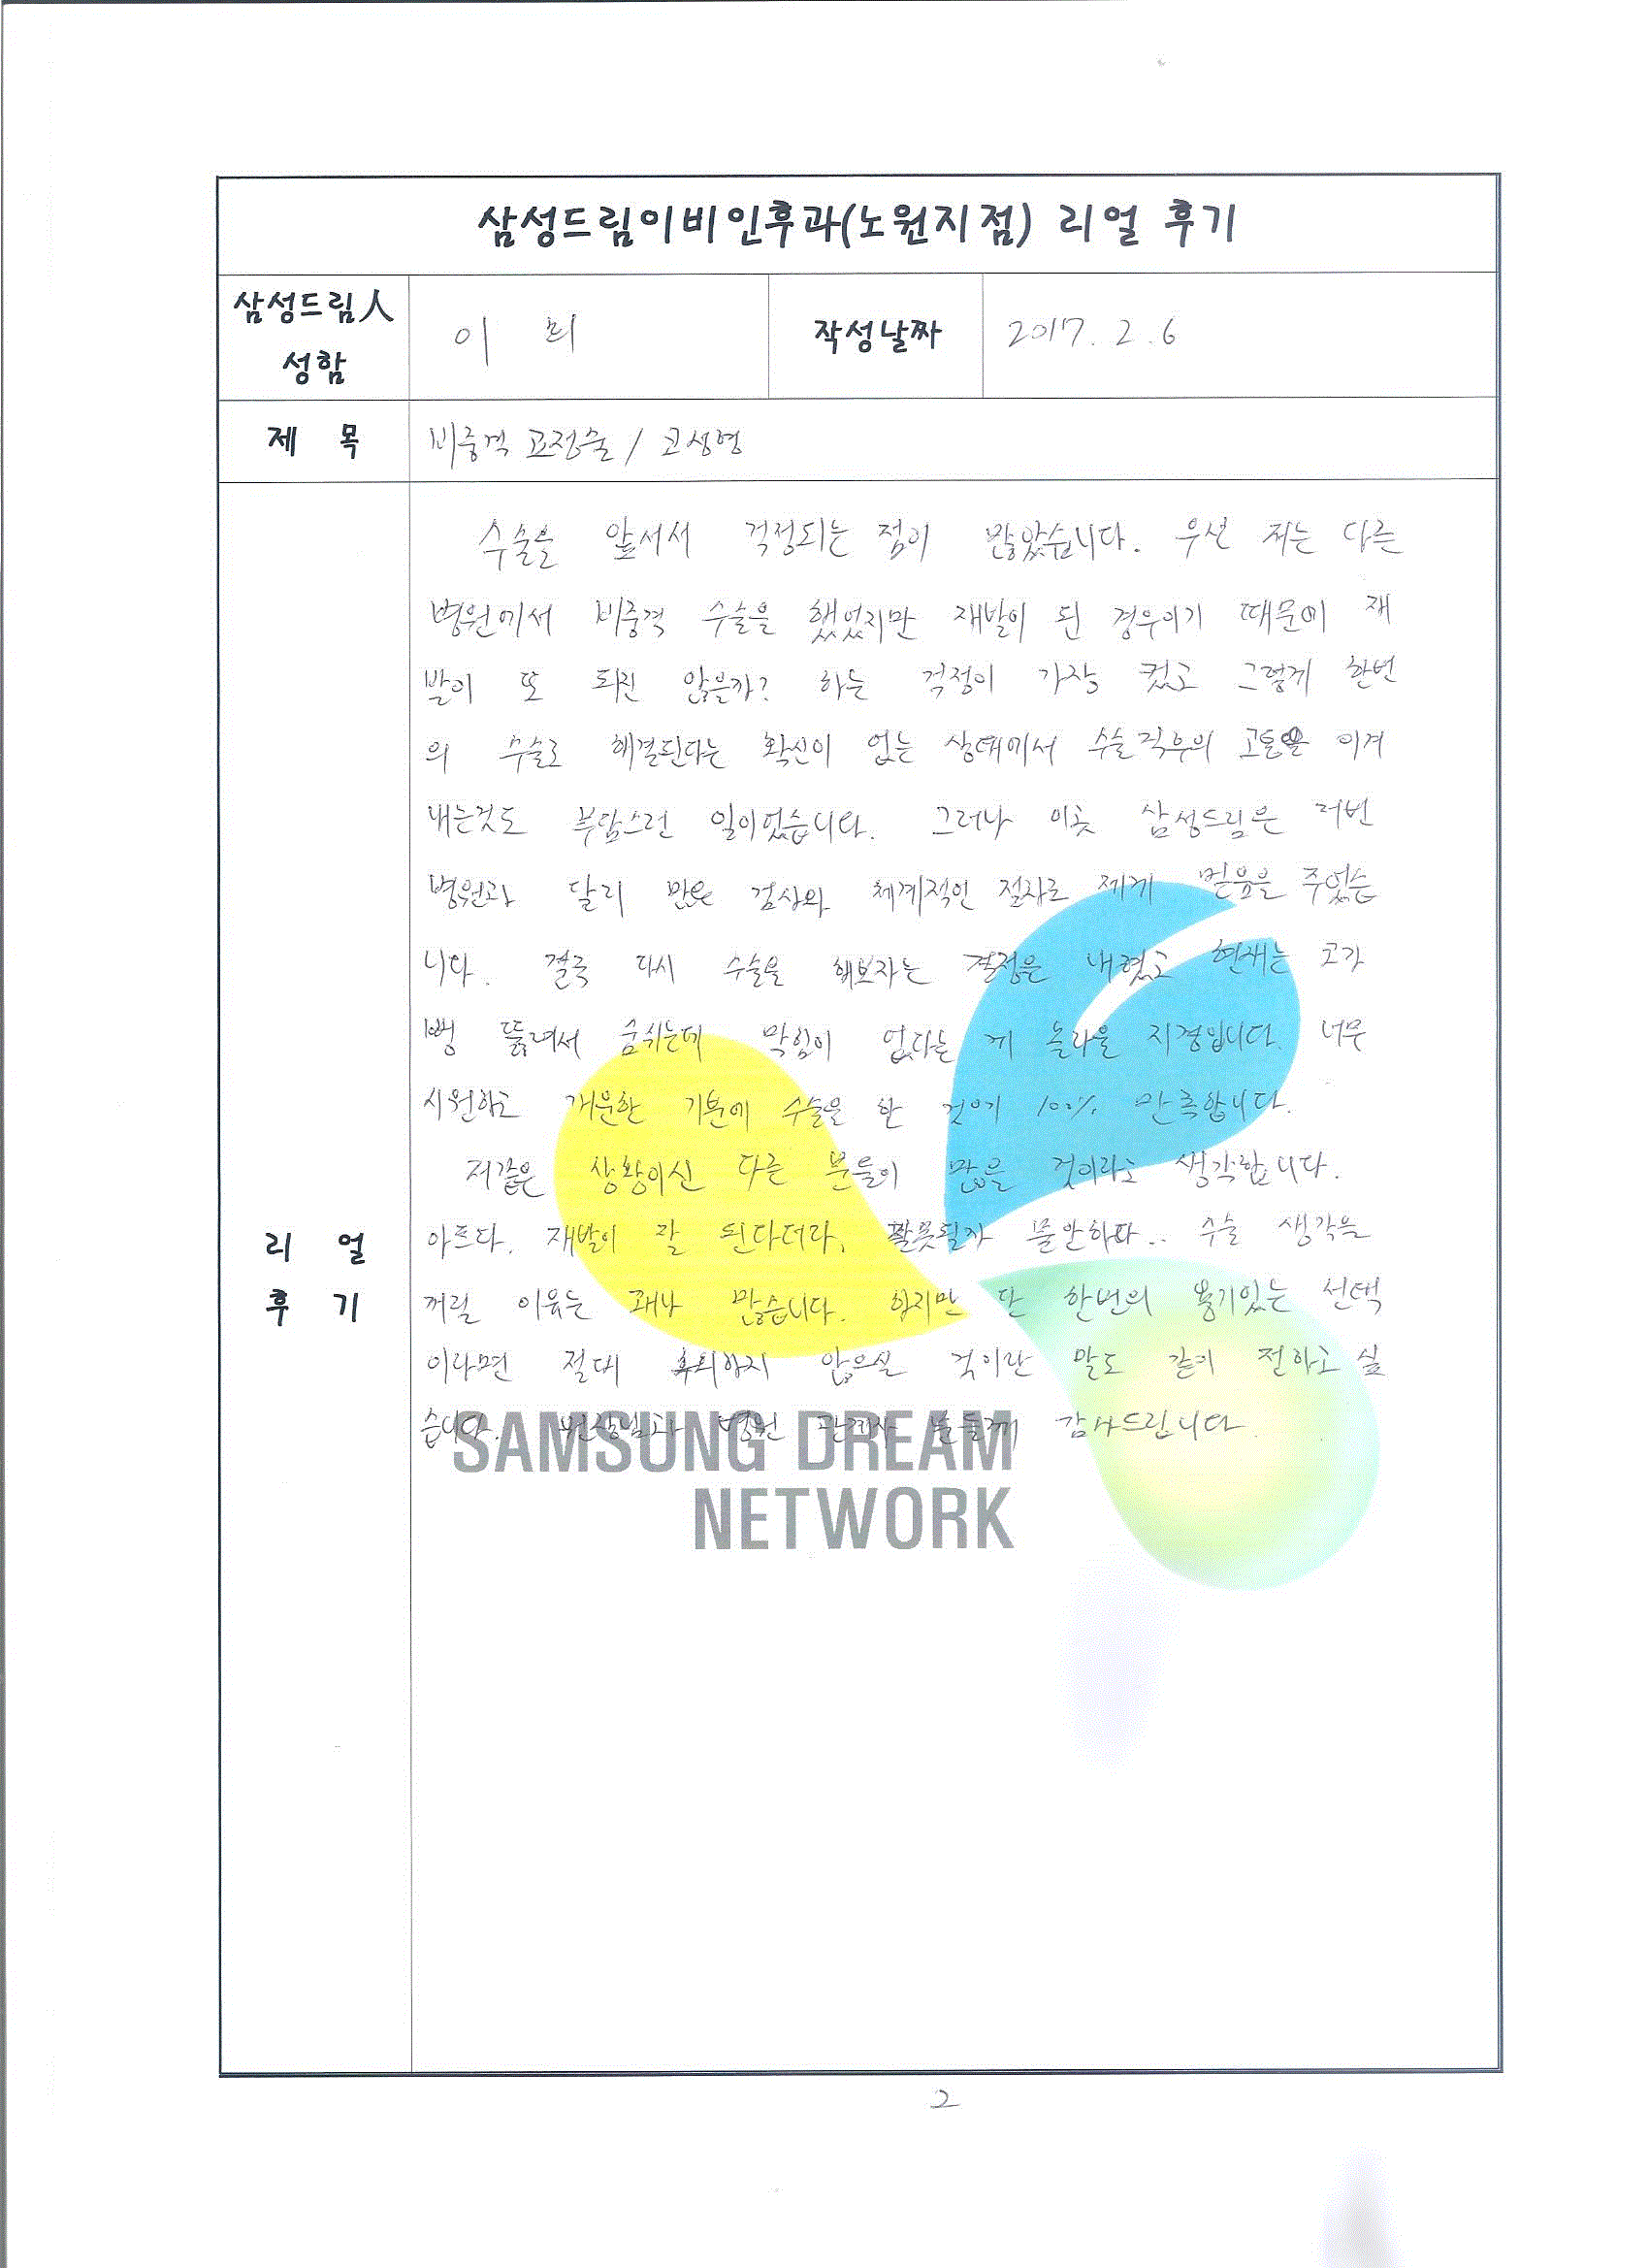 삼성드림이비인후과(노원지점) 리얼 후기
삼성드림人
성함
이 희
작성날짜
2017. 2. 6
제 목
비중격 교정술 / 코성형
수술을 앞서서 걱정되는 점이 많았습니다. 우선 저는 다른
병원에서 비중격 수술을 했었지만 재발이 된 경우이기 때문에 재
발이 또 되진 않을까? 하는 걱정이 가장 컸고 그렇게 한번
의 수술로 해결된다는 확신이 없는 상태에서 수술직후의 고통을 이겨
내는것도 부담스런 일이었습니다. 그러나 이곳 삼성드림은 저번
병원과 달리 많은 검사와 체계적인 절차로 제게 믿음을 주었습
니다. 결국 다시 수술을 해보자는 결정을 내렸고 현재는 코가
뻥 뚫려서 숨쉬는데 막힘이 없다는 게 놀라울 지경입니다. 너무
시원하고 개운한 기분에 수술을 한 것에 100% 만족합니다.
저같은 상황이신 다른 분들이 많을 것이라고 생각합니다.
아프다. 재발이 잘 된다더라, 잘못될까 불안하다.. 수술 생각을
꺼릴 이유는 꽤나 많습니다. 하지만 단 한번의 용기있는 선택
이라면 절대 후회하지 않으실 것이란 말도 같이 전하고 싶
습니다. 원장님과 병원 관계자 분들께 감사드립니다.
리 얼
후 기
SAMSUNG DREAM
NETWORK
2